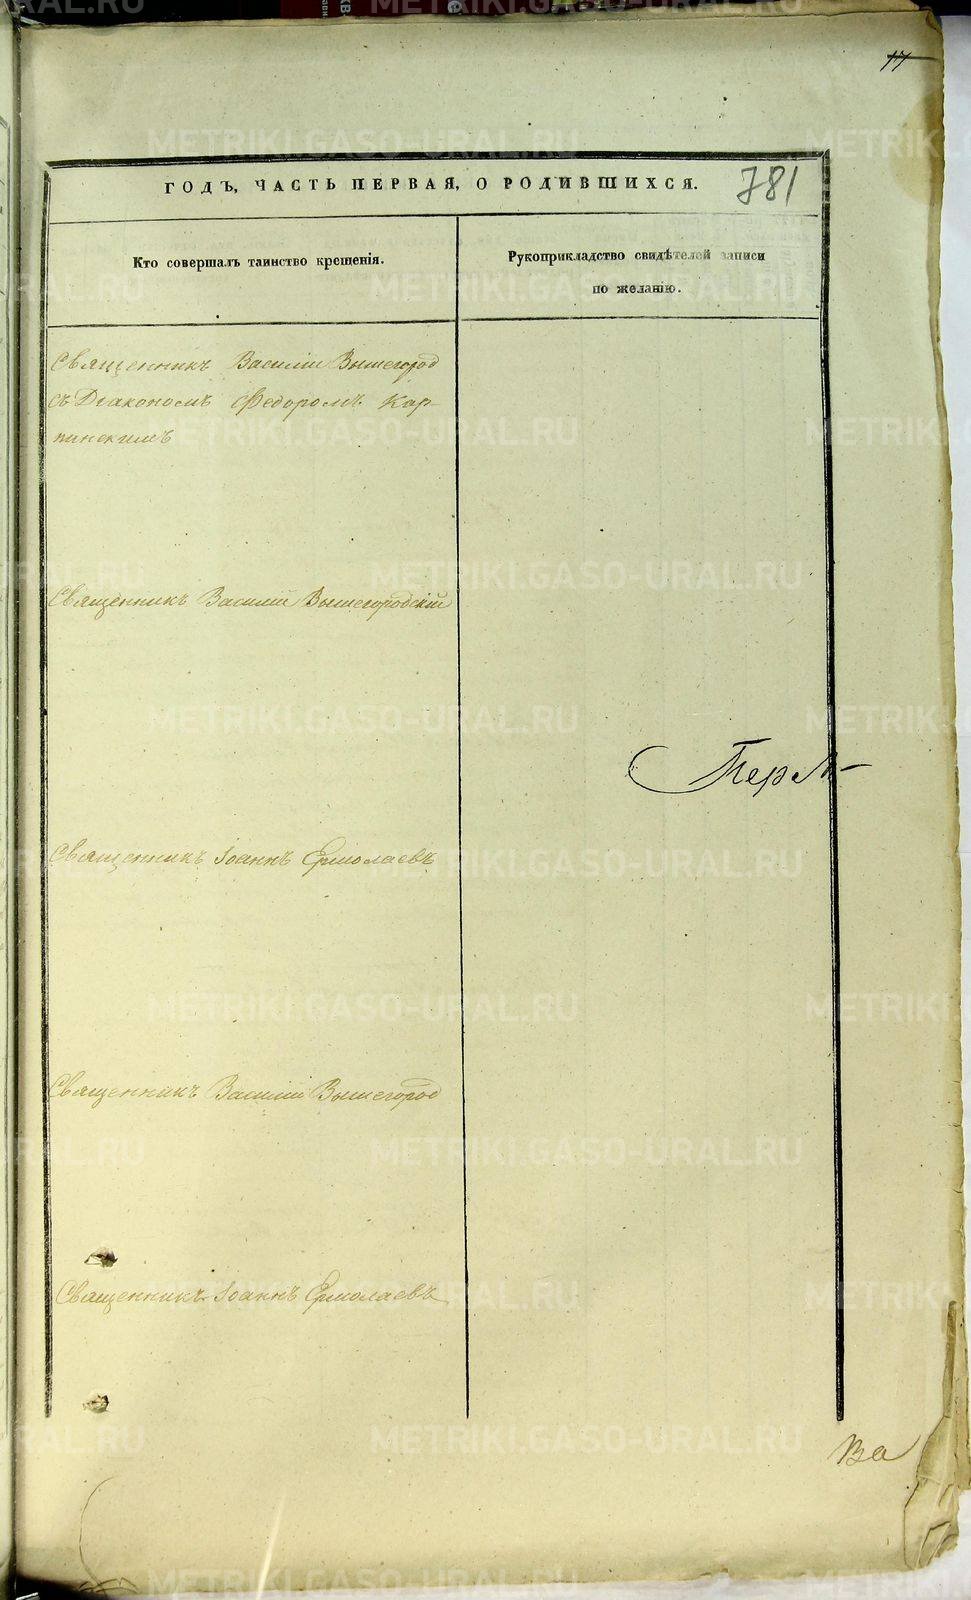 17
ГОДЪ, ЧАСТЬ ПЕРВАЯ, О РОДИВШИХСЯ.
781
Кто совершалъ таинство крещенія.
Рукоприкладство свидѣтелей записи
по желанію.
Священникъ Василій Вышегород
съ Діакономъ Федоромъ Кар-
пинскимъ
Священникъ Василій Вышегородскій
Перм
Священникъ Іоаннъ Ермолаевъ
Священникъ Василій Вышегород
Священникъ Іоаннъ Ермолаевъ
Ва
METRIKI.GASO-URAL.RU